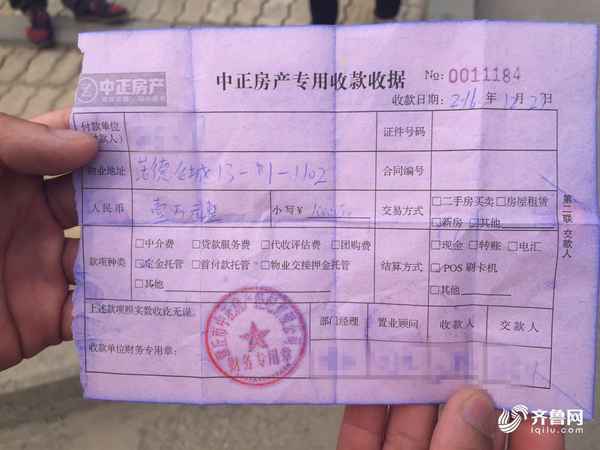 中正房产
中正房产专用收款收据 No: 0011184
收款日期: 2016年12月27日
付款单位 证件号码
(付款人)
物业地址 13-1-1102 合同编号
人民币 壹万元整 小写¥ 交易方式 □二手房买卖 □房屋租赁
□新房 □其他
款项种类 □中介费 □贷款服务费 □代收评估费 □团购费
□定金托管 □首付款托管 □物业交接押金托管
□其他
结算方式 □现金 □转账 □电汇
□POS 刷卡机
□其他
上述款项照实数收讫无误。 部门经理 置业顾问 收款人 交款人
收款单位财务专用章:
财务专用章
第二联 交款人
齐鲁网
iqilu.com